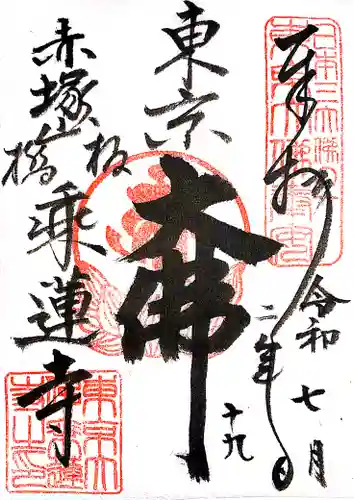 奉拝
令和
二年
七月
十九日
東京
大佛
板橋
赤塚
乗蓮寺